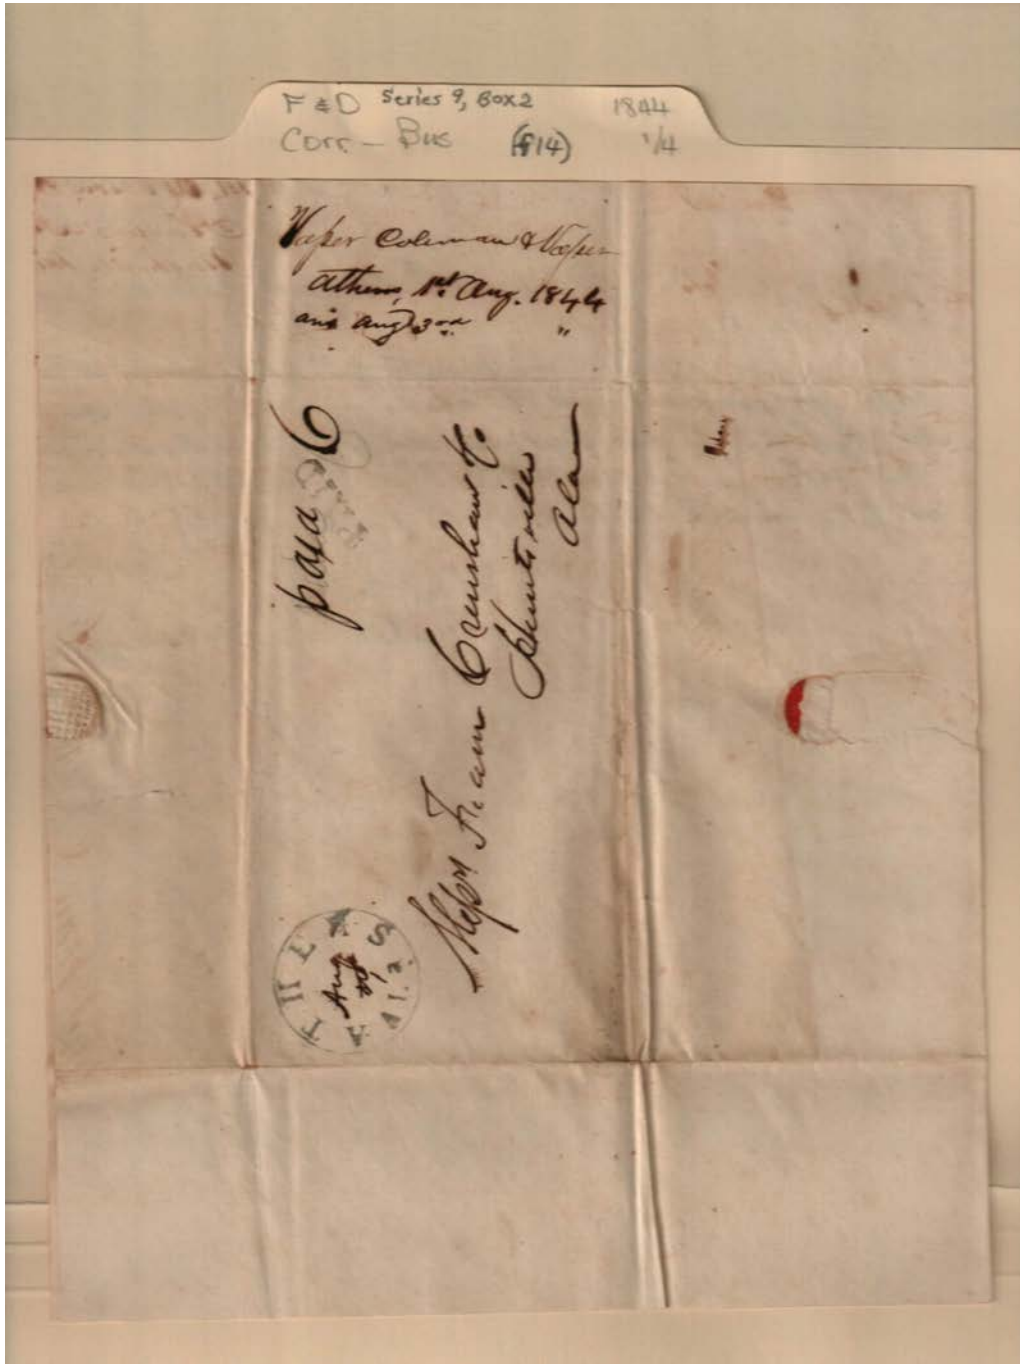 F & D Series 9, Box 2 1844
Corr - Bus (f14) 1/4
Coleman &
Athens, 1st Aug. 1844
Aug 3rd "
paid 6
PAID
Messrs Fearn Crenshaw & Co
Huntsville
Ala
ATHENS Ala.
Aug